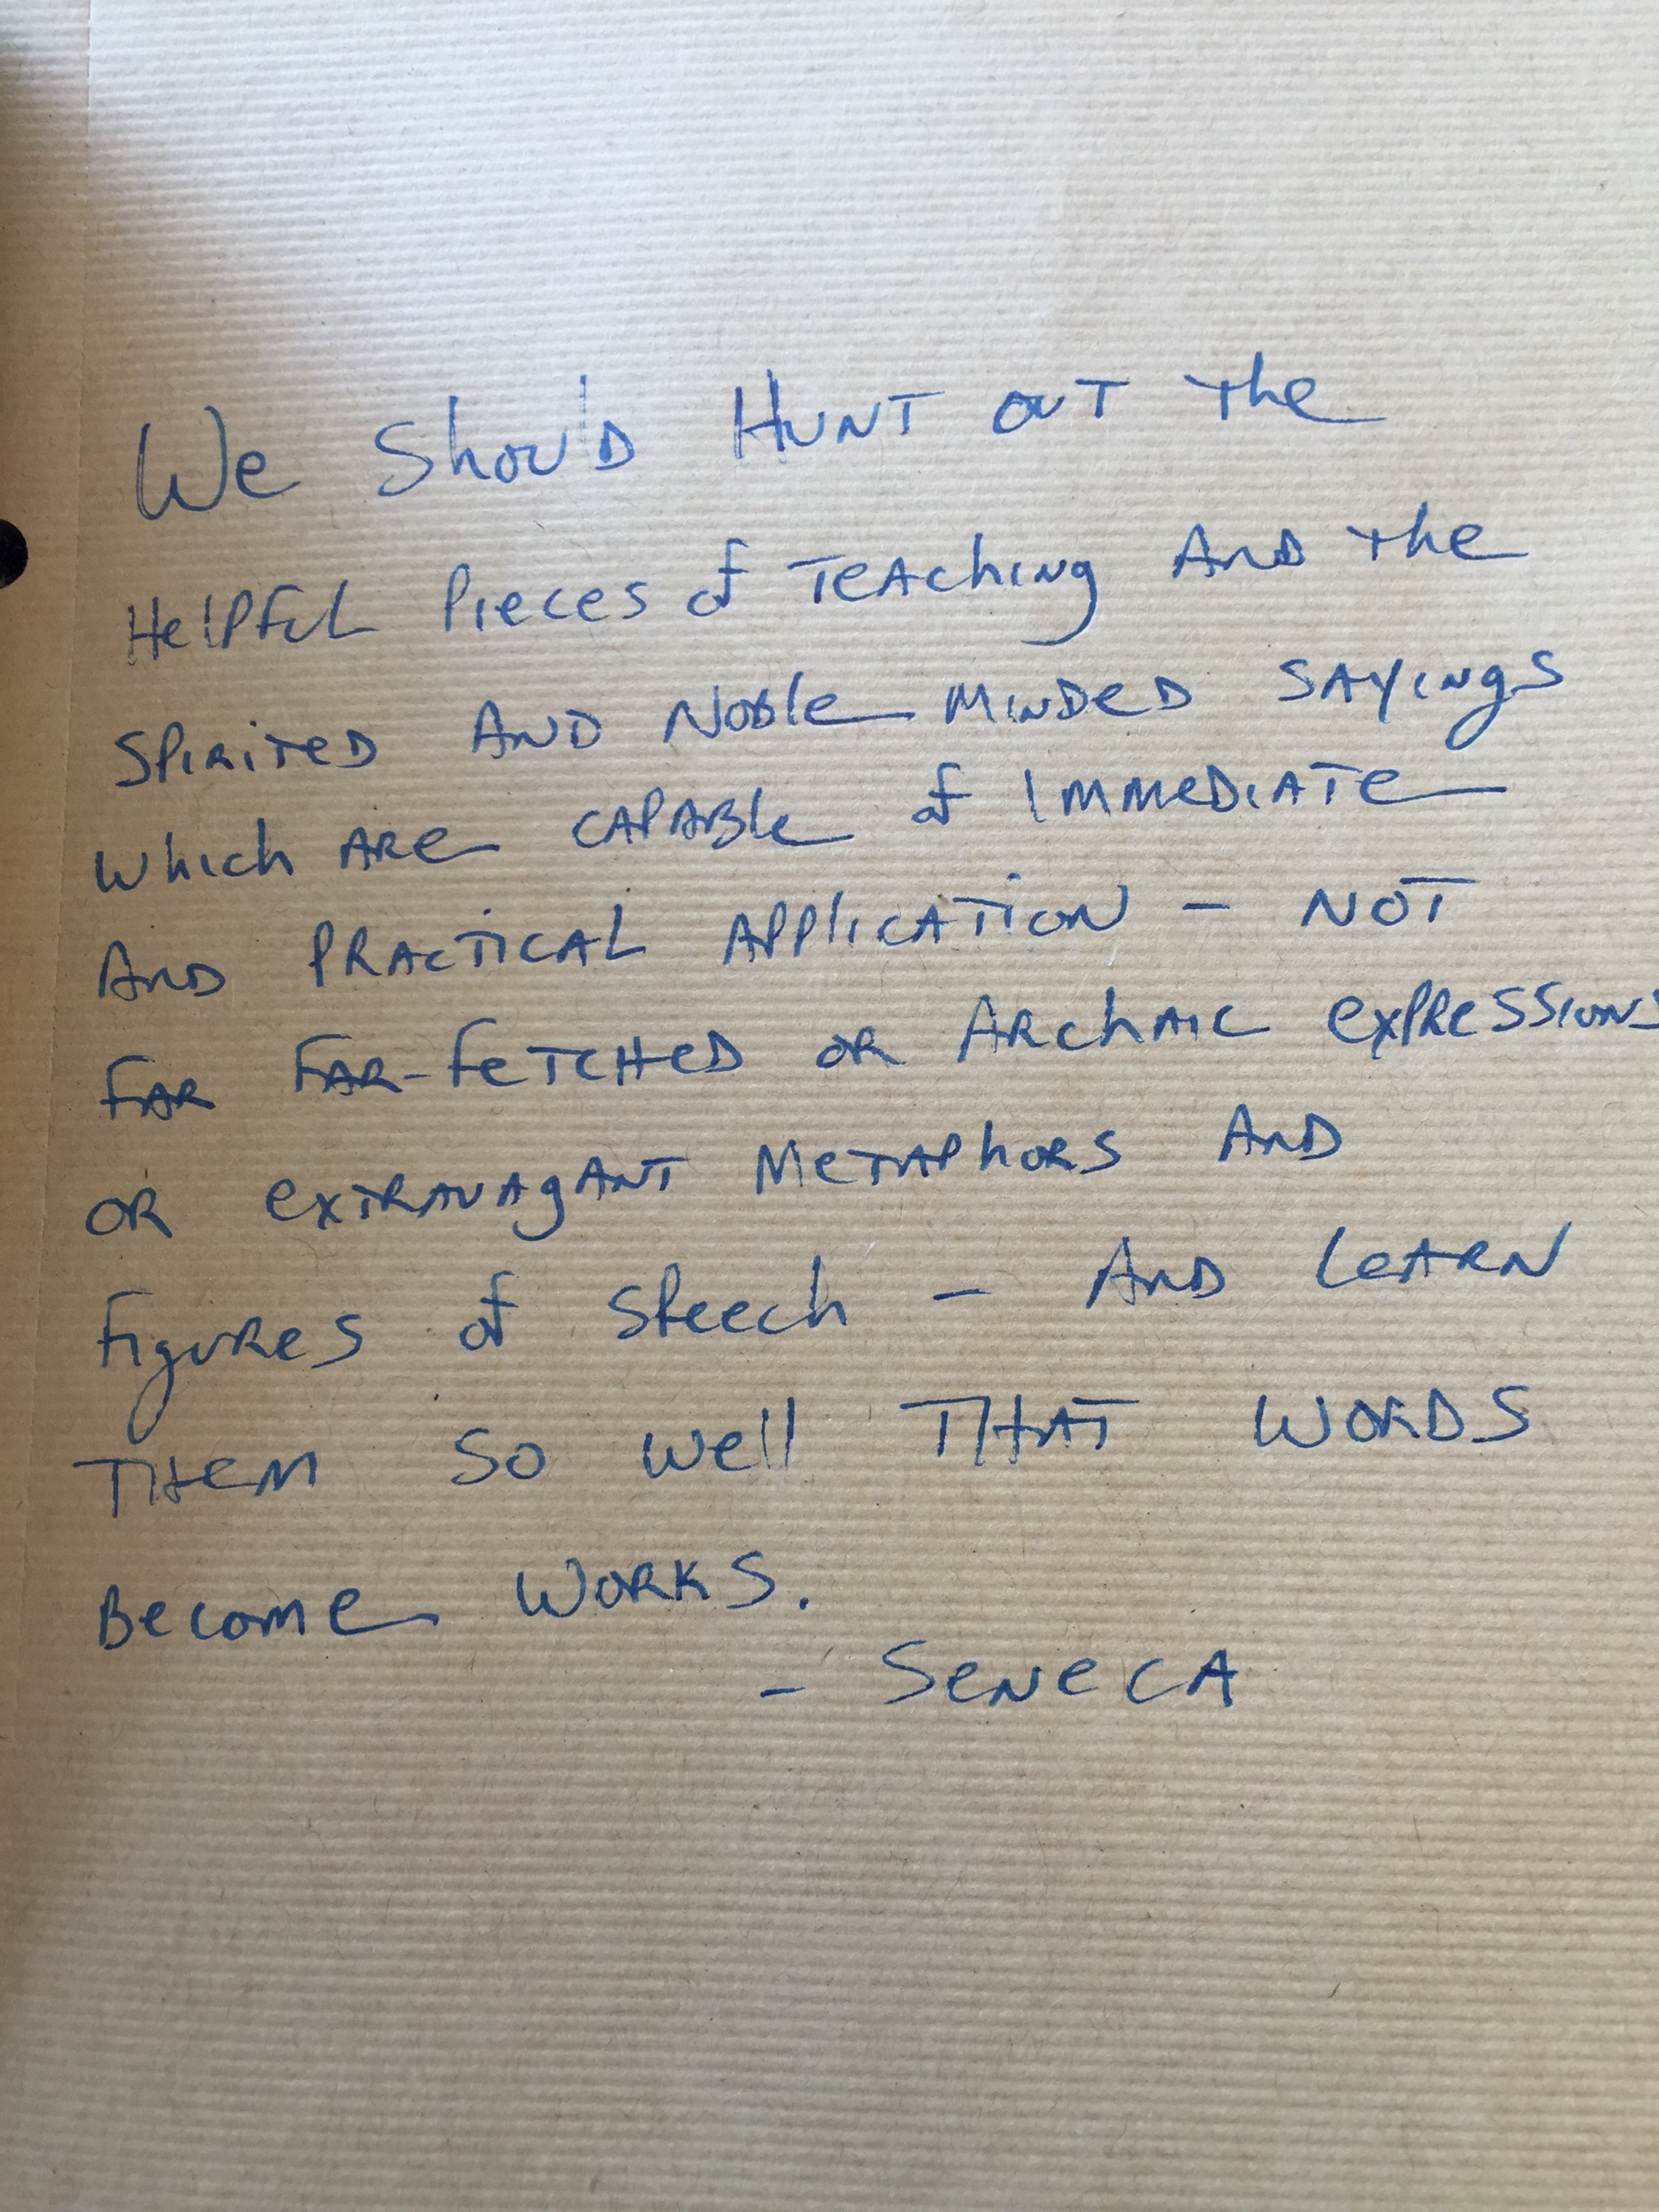 We Should HUNT OUT The
HelPFUL Pieces of TeAChiNg AND the
SPiRiTeD AND NoBle MiNDeD SAYiNgS
Which ARe CAPABle of IMMeDiATe
AND PRACTiCAL APPliCATiON - NOT
FAR FAR-FeTCHeD OR ARChAiC exPReSSiONS
OR exTRAVAgANT MeTAPhORS AND
FigUReS of SPeech - AND LeARN
THeM SO Well THAT WORDS
BeCOMe WORKS.
- SeNeCA